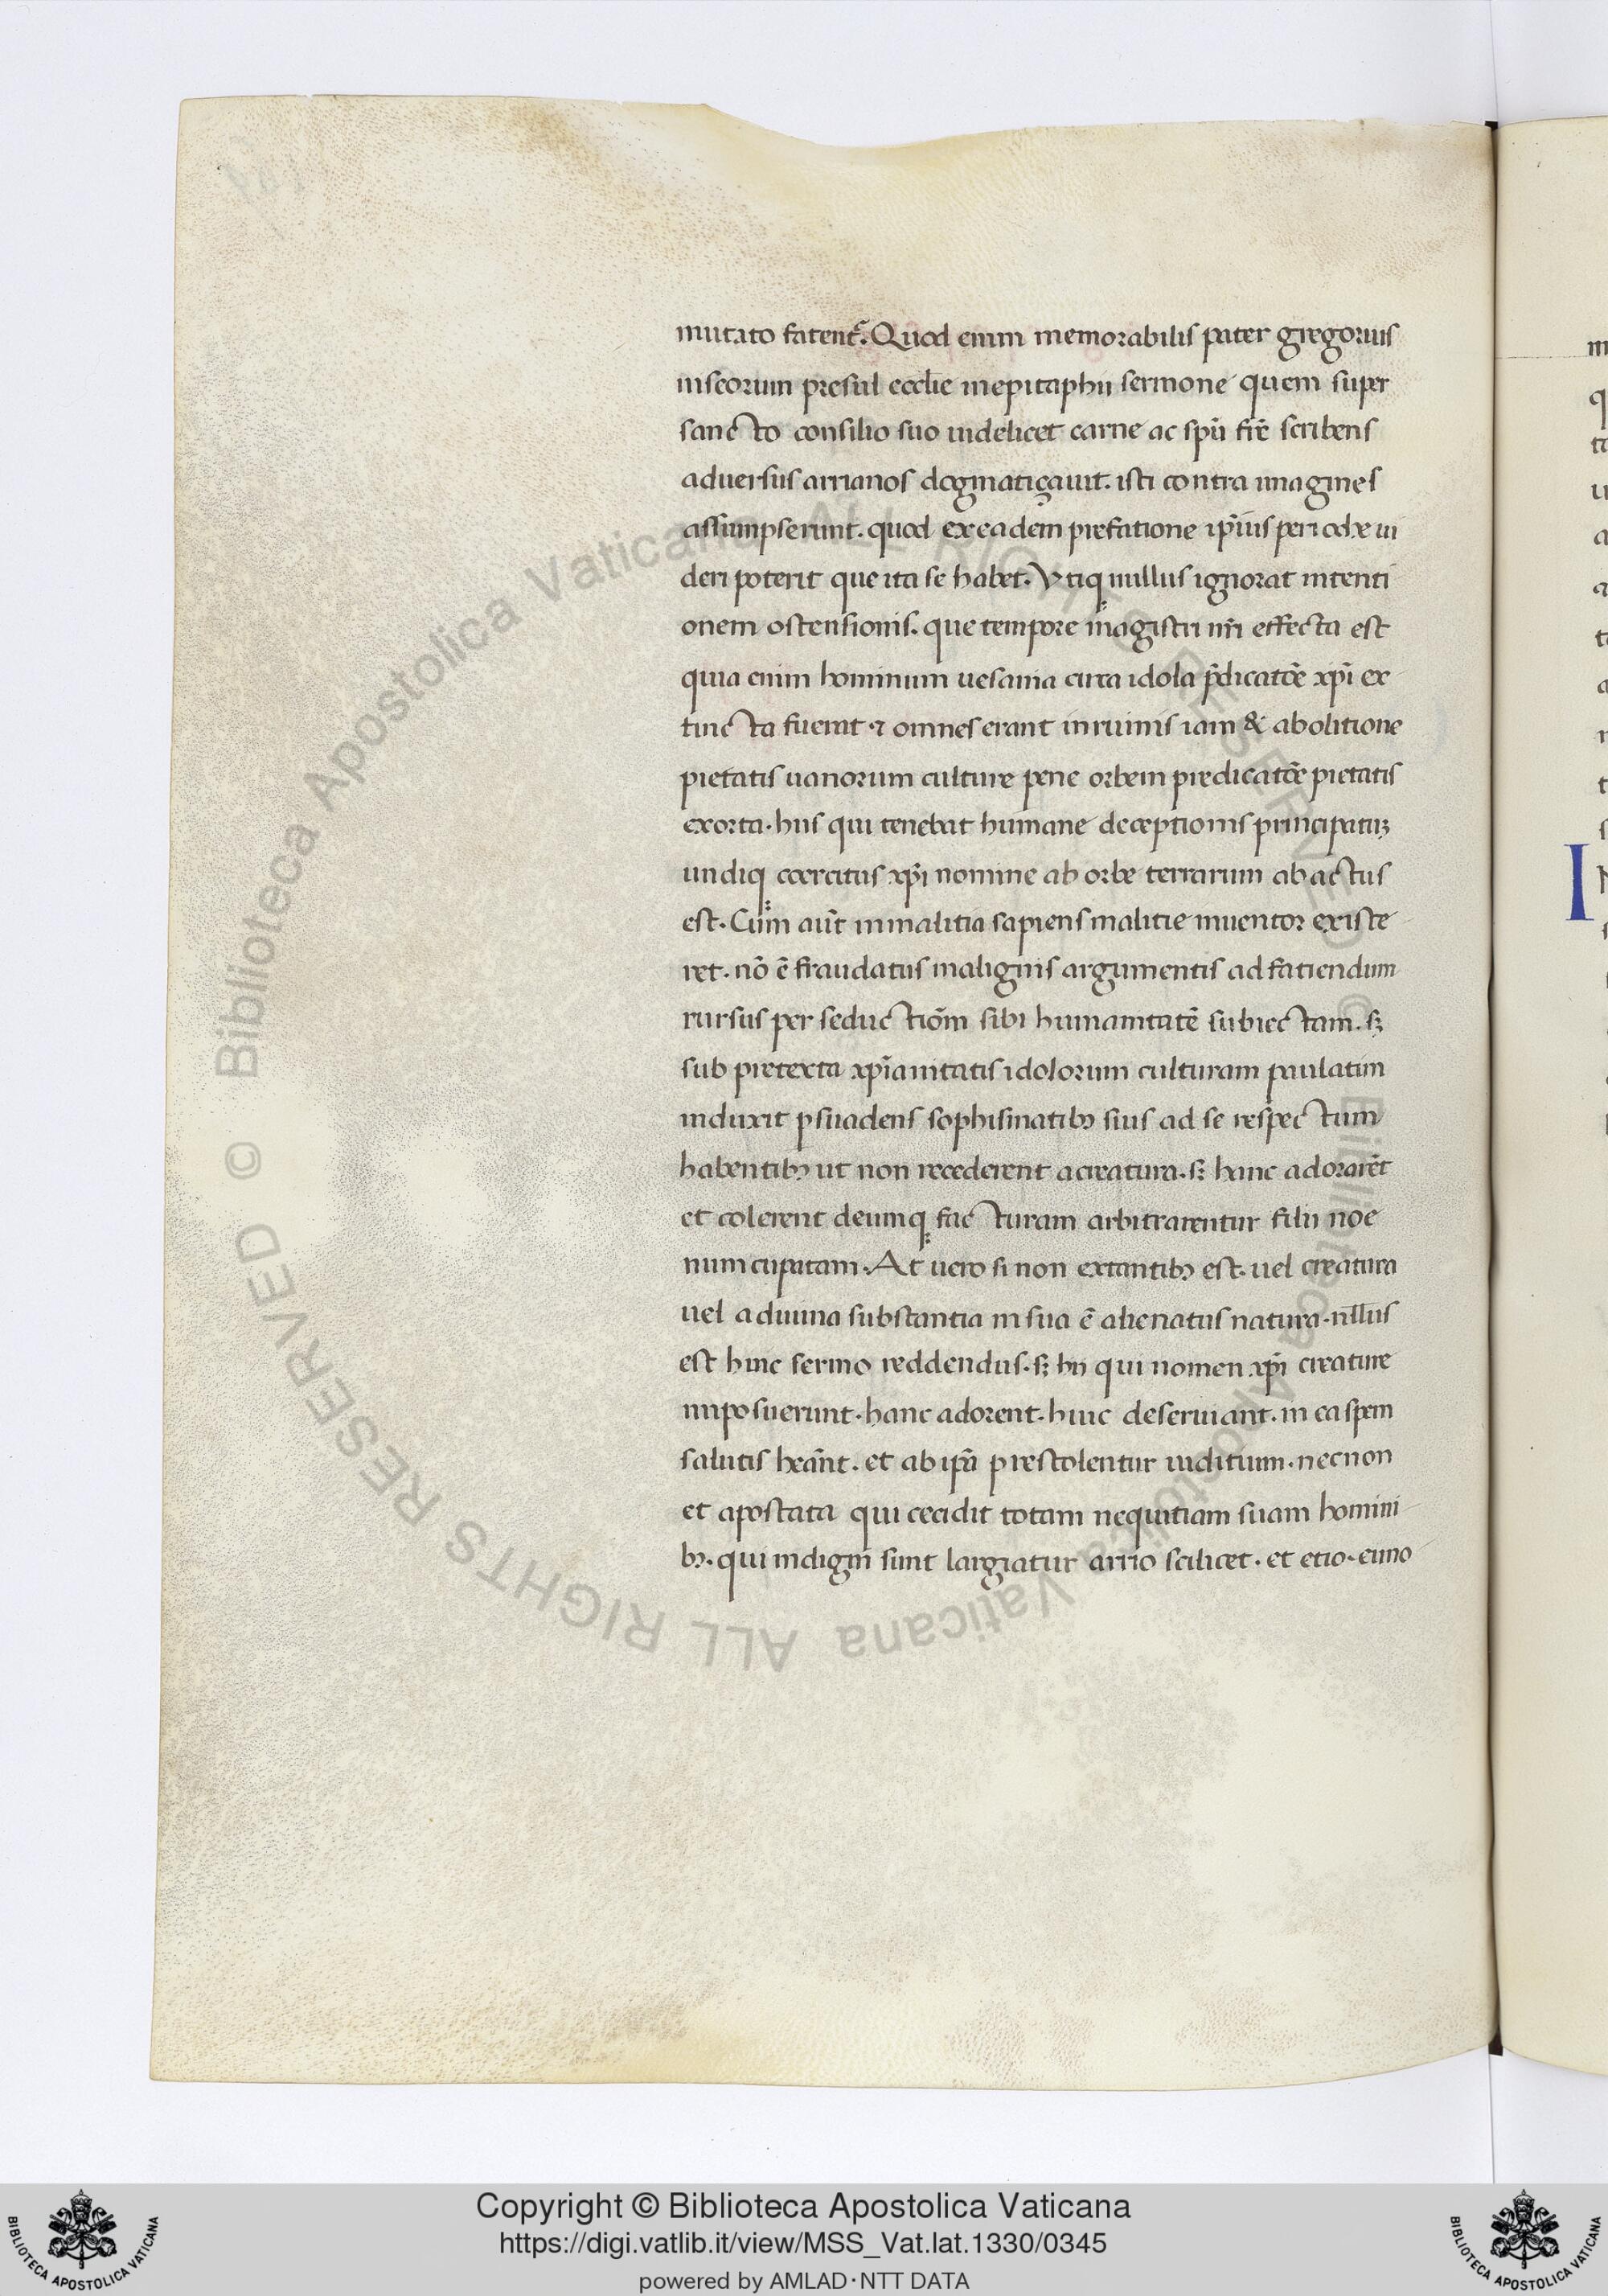 mutato fatent᷑. Quod enim memorabilis pater gregorius
niseorum presul ecclie inepitaphii sermone quem super
sancto consilio suo uidelicet carne ac spū fr̄e scribens
aduersus arrianos dogmatiçauit. isti contra imagines
assumpserunt. quod ex eadem prefatione ip̄ius periodxe ui
deri poterit que ita se habet. Vtiq; nullus ignorat intenti
onem ostensionis. que tempore magistri nr̄i effecta est
quia enim hominum uesania circa idola p̄dicatōe xp̄i ex
tincta fuerat ⁊ omnes erant inruinis iam & abolitione
pietatis uanorum culture pene orbem predicatōe pietatis
exorta. hiis qui tenebat humane deceptionis principatuꝫ
undiq; coercitus xp̄i nomine ab orbe terrarum abactus
est. Cum aūt inmalitia sapiens malitie inuentor existe
ret. nō ē fraudatus malignis argumentis ad fatiendum
rursus per seductiōm sibi humanitatē subiectam. sꝫ
sub pretexta xp̄ianitatis idolorum culturam paulatim
induxit psuadens sophismatibꝫ suis ad se respectum
habentibꝫ ut non recederent acreatura. sꝫ hanc adorarēt
et colerent deumq; facturam arbitrarentur filii noe
nuncupatam. At uero si non extantibꝫ est. uel creatura
uel adiuina substantia in sua ē alienatus natura. nllus
est hinc sermo reddendus. sꝫ hii qui nomen xp̄i creature
imposuerunt. hanc adorent. huic deseruiant. in ea spem
salutis heānt. et ab ip̄a prestolentur iuditium. necnon
et apostata qui cecidit totam nequitiam suam homini
bꝫ. qui indigni sunt largiatur arrio scilicet. et etio. euno
I
Copyright © Biblioteca Apostolica Vaticana
https://digi.vatlib.it/view/MSS_Vat.lat.1330/0345
powered by AMLAD · NTT DATA
BIBLIOTECA APOSTOLICA VATICANA
BIBLIOTECA APOSTOLICA VATICANA
© Biblioteca Apostolica Vaticana ALL RIGHTS RESERVED © Biblioteca Apostolica Vaticana ALL RIGHTS RESERVED